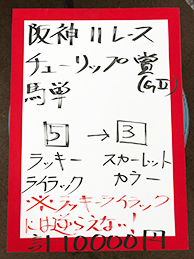 阪神11レース
チューリップ賞
(GⅡ)
馬単
5 → 3
ラッキー スカーレット
ライラック カラー
※ラッキーライラック
には逆らえない!
110000円